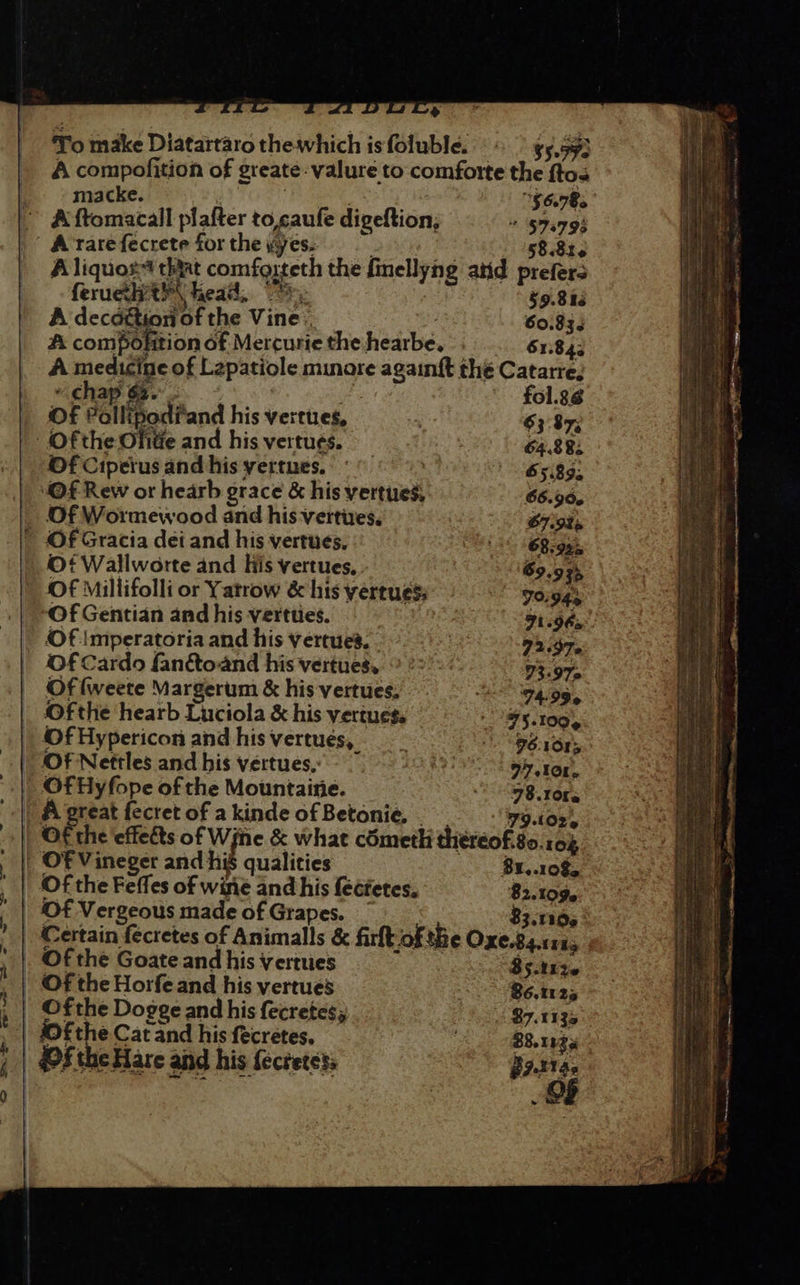 THE TABLE,
To make Diatartaro the which is ſoluble. 55.
A compoſition of greate valure to comforte the ſto-
macke. 56.78.
A ſtomacall plaſter to cauſe digeſtion, 57.79.
A rare ſecrete for the yes. 58.81.
A liquor that comforteth the ſmellyng and preſer-
ſerueth the head, 59.81.
A decoction of the Vine. 60.83.
A compoſition of Mercurie the hearbe. 61.84.
A medicine of Lapatiole minore againſt the Catarre,
chap 62. fol.86
Of Pollipodi and his vertues, 63 87.
Of the Oliue and his vertues. 64.88.
Of Ciperus and his vertues. 65.89.
Of Rew or hearb grace & his vertues, 66.90.
Of Wormewood and his vertues. 67.91.
Of Gracia dei and his vertues. 68.92.
Of Wallworte and his vertues. 69.93.
Of Millifolli or Yarrow & his vertues, 70.94.
Of Gentian and his vertues. 71.96.
Of Imperatoria and his vertues. 72.97.
Of Cardo ſancto and his vertues, 73.97.
Of ſweete Margerum & his vertues. 74.99.
Of the hearb Luciola & his vertues. 75.100.
Of Hypericon and his vertues, 76.101.
Of Nettles and his vertues. 77.101.
Of Hyſope of the Mountaine. 78.101.
A great ſecret of a kinde of Betonie. 79.102.
Of the effects of Wine & what cōmeth thereof.80.104.
Of Vineger and his qualities 81..108.
Of the Feſſes of wine and his ſecretes. 82.109.
Of Vergeous made of Grapes. 83.110.
Certain ſecretes of Animalls & firſt of the Oxe.84.111.
Of the Goate and his vertues 85.112.
Of the Horſe and his vertues 86.112.
Of the Dogge and his ſecretes, 87.113.
Of the Cat and his ſecretes. 88.113.
Of the Hare and his ſecretes. 89.114.
Of